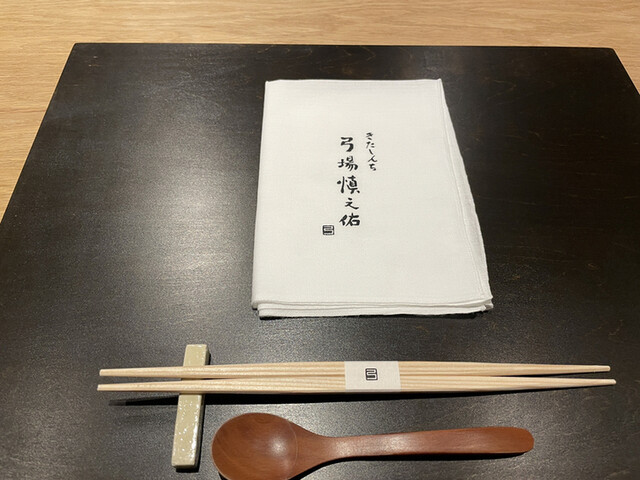 きたしんち
弓場慎之佑
弓
弓